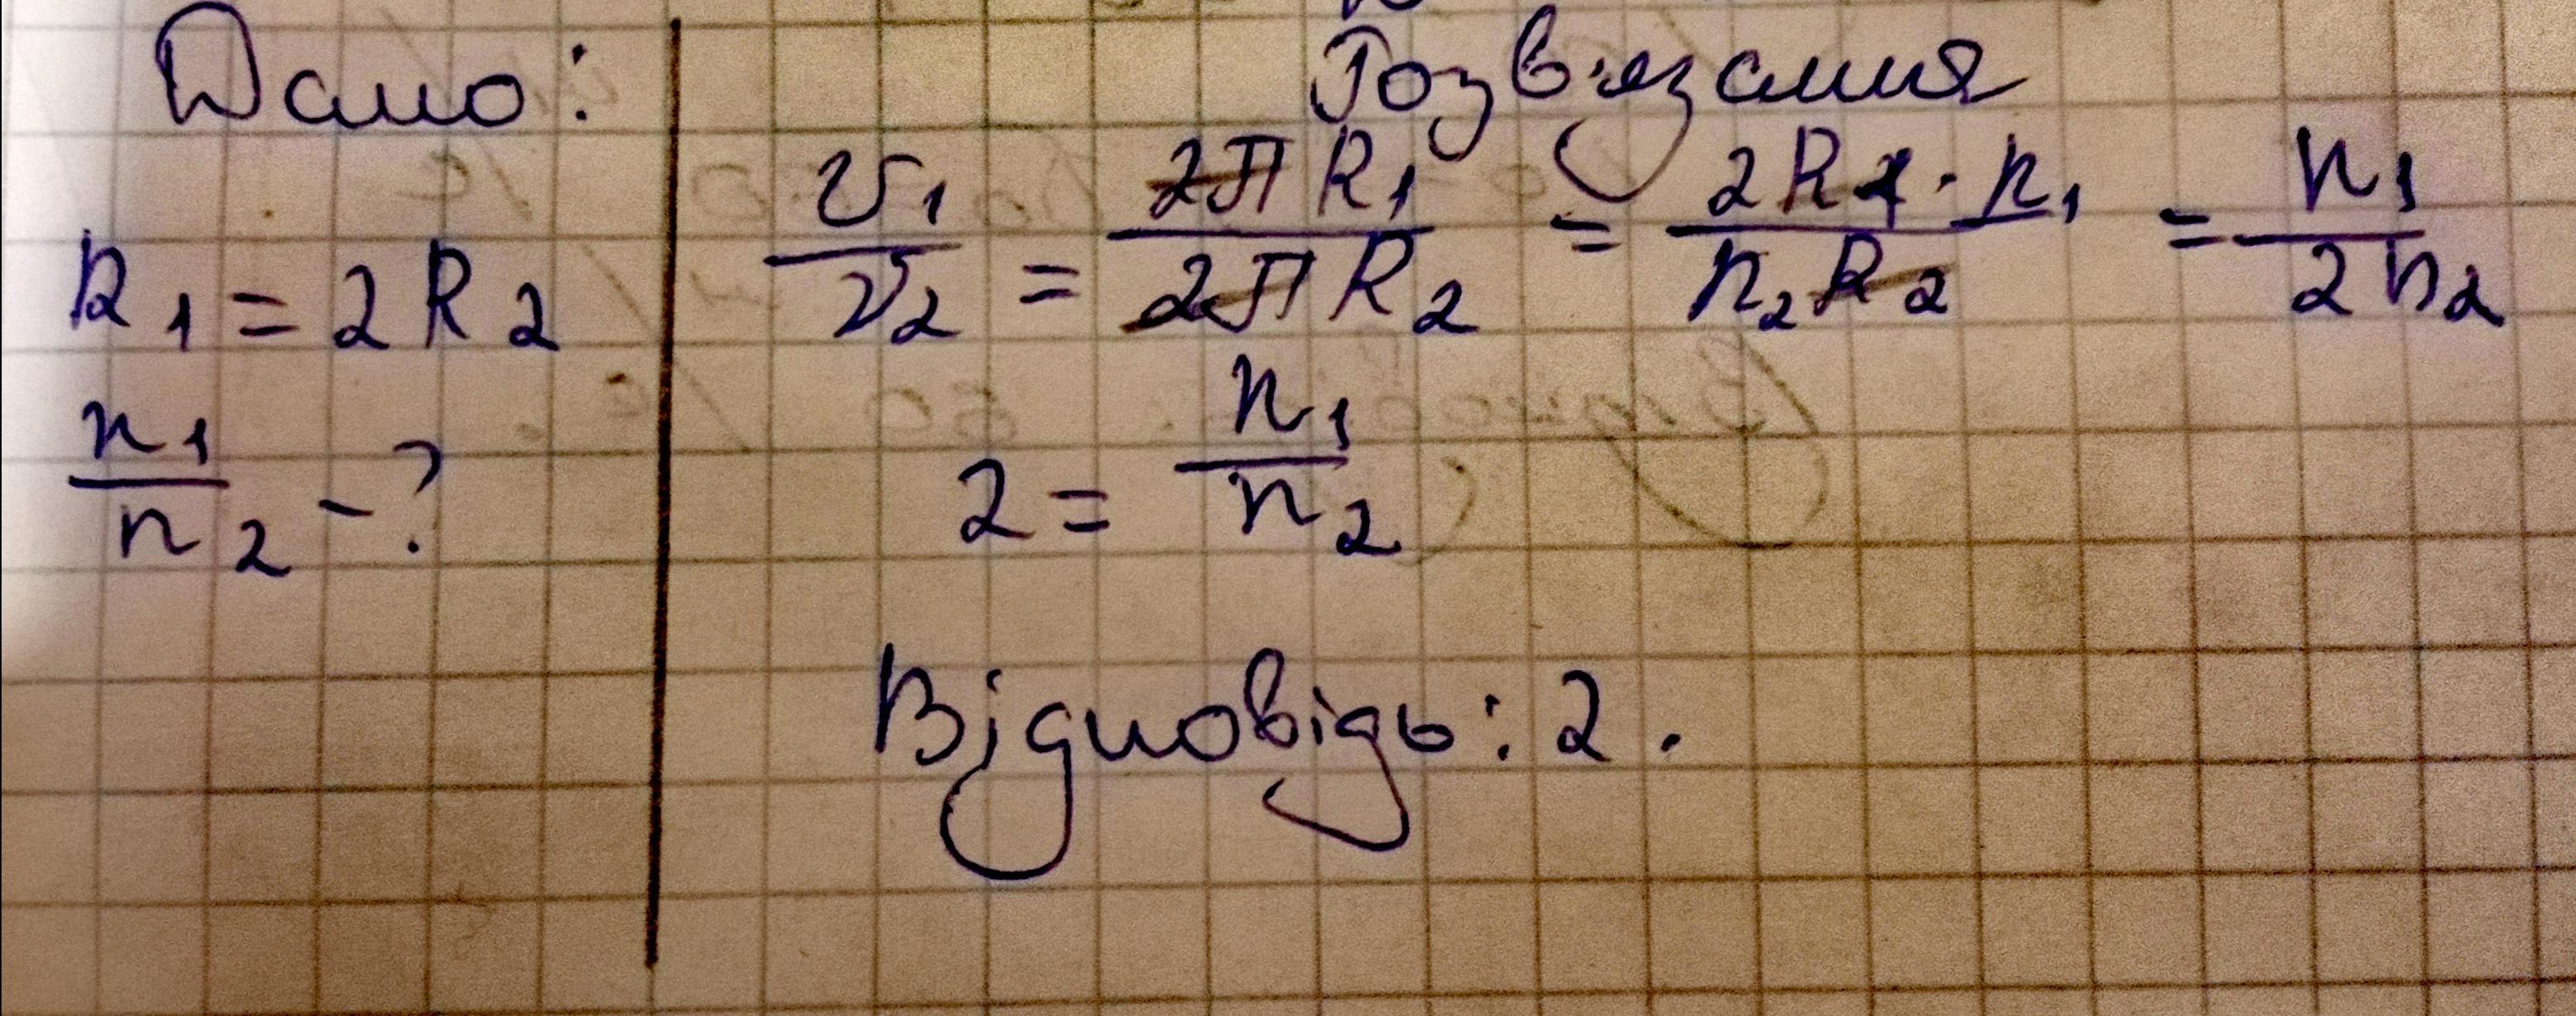 Дано:
R₁ = 2R₂
n₁/n₂ - ?
Розв'язання
v₁/v₂ = 2πR₁/2πR₂ = 2R₁·n₁/n₂R₂ = n₁/2n₂
2 = n₁/n₂
Відповідь: 2.